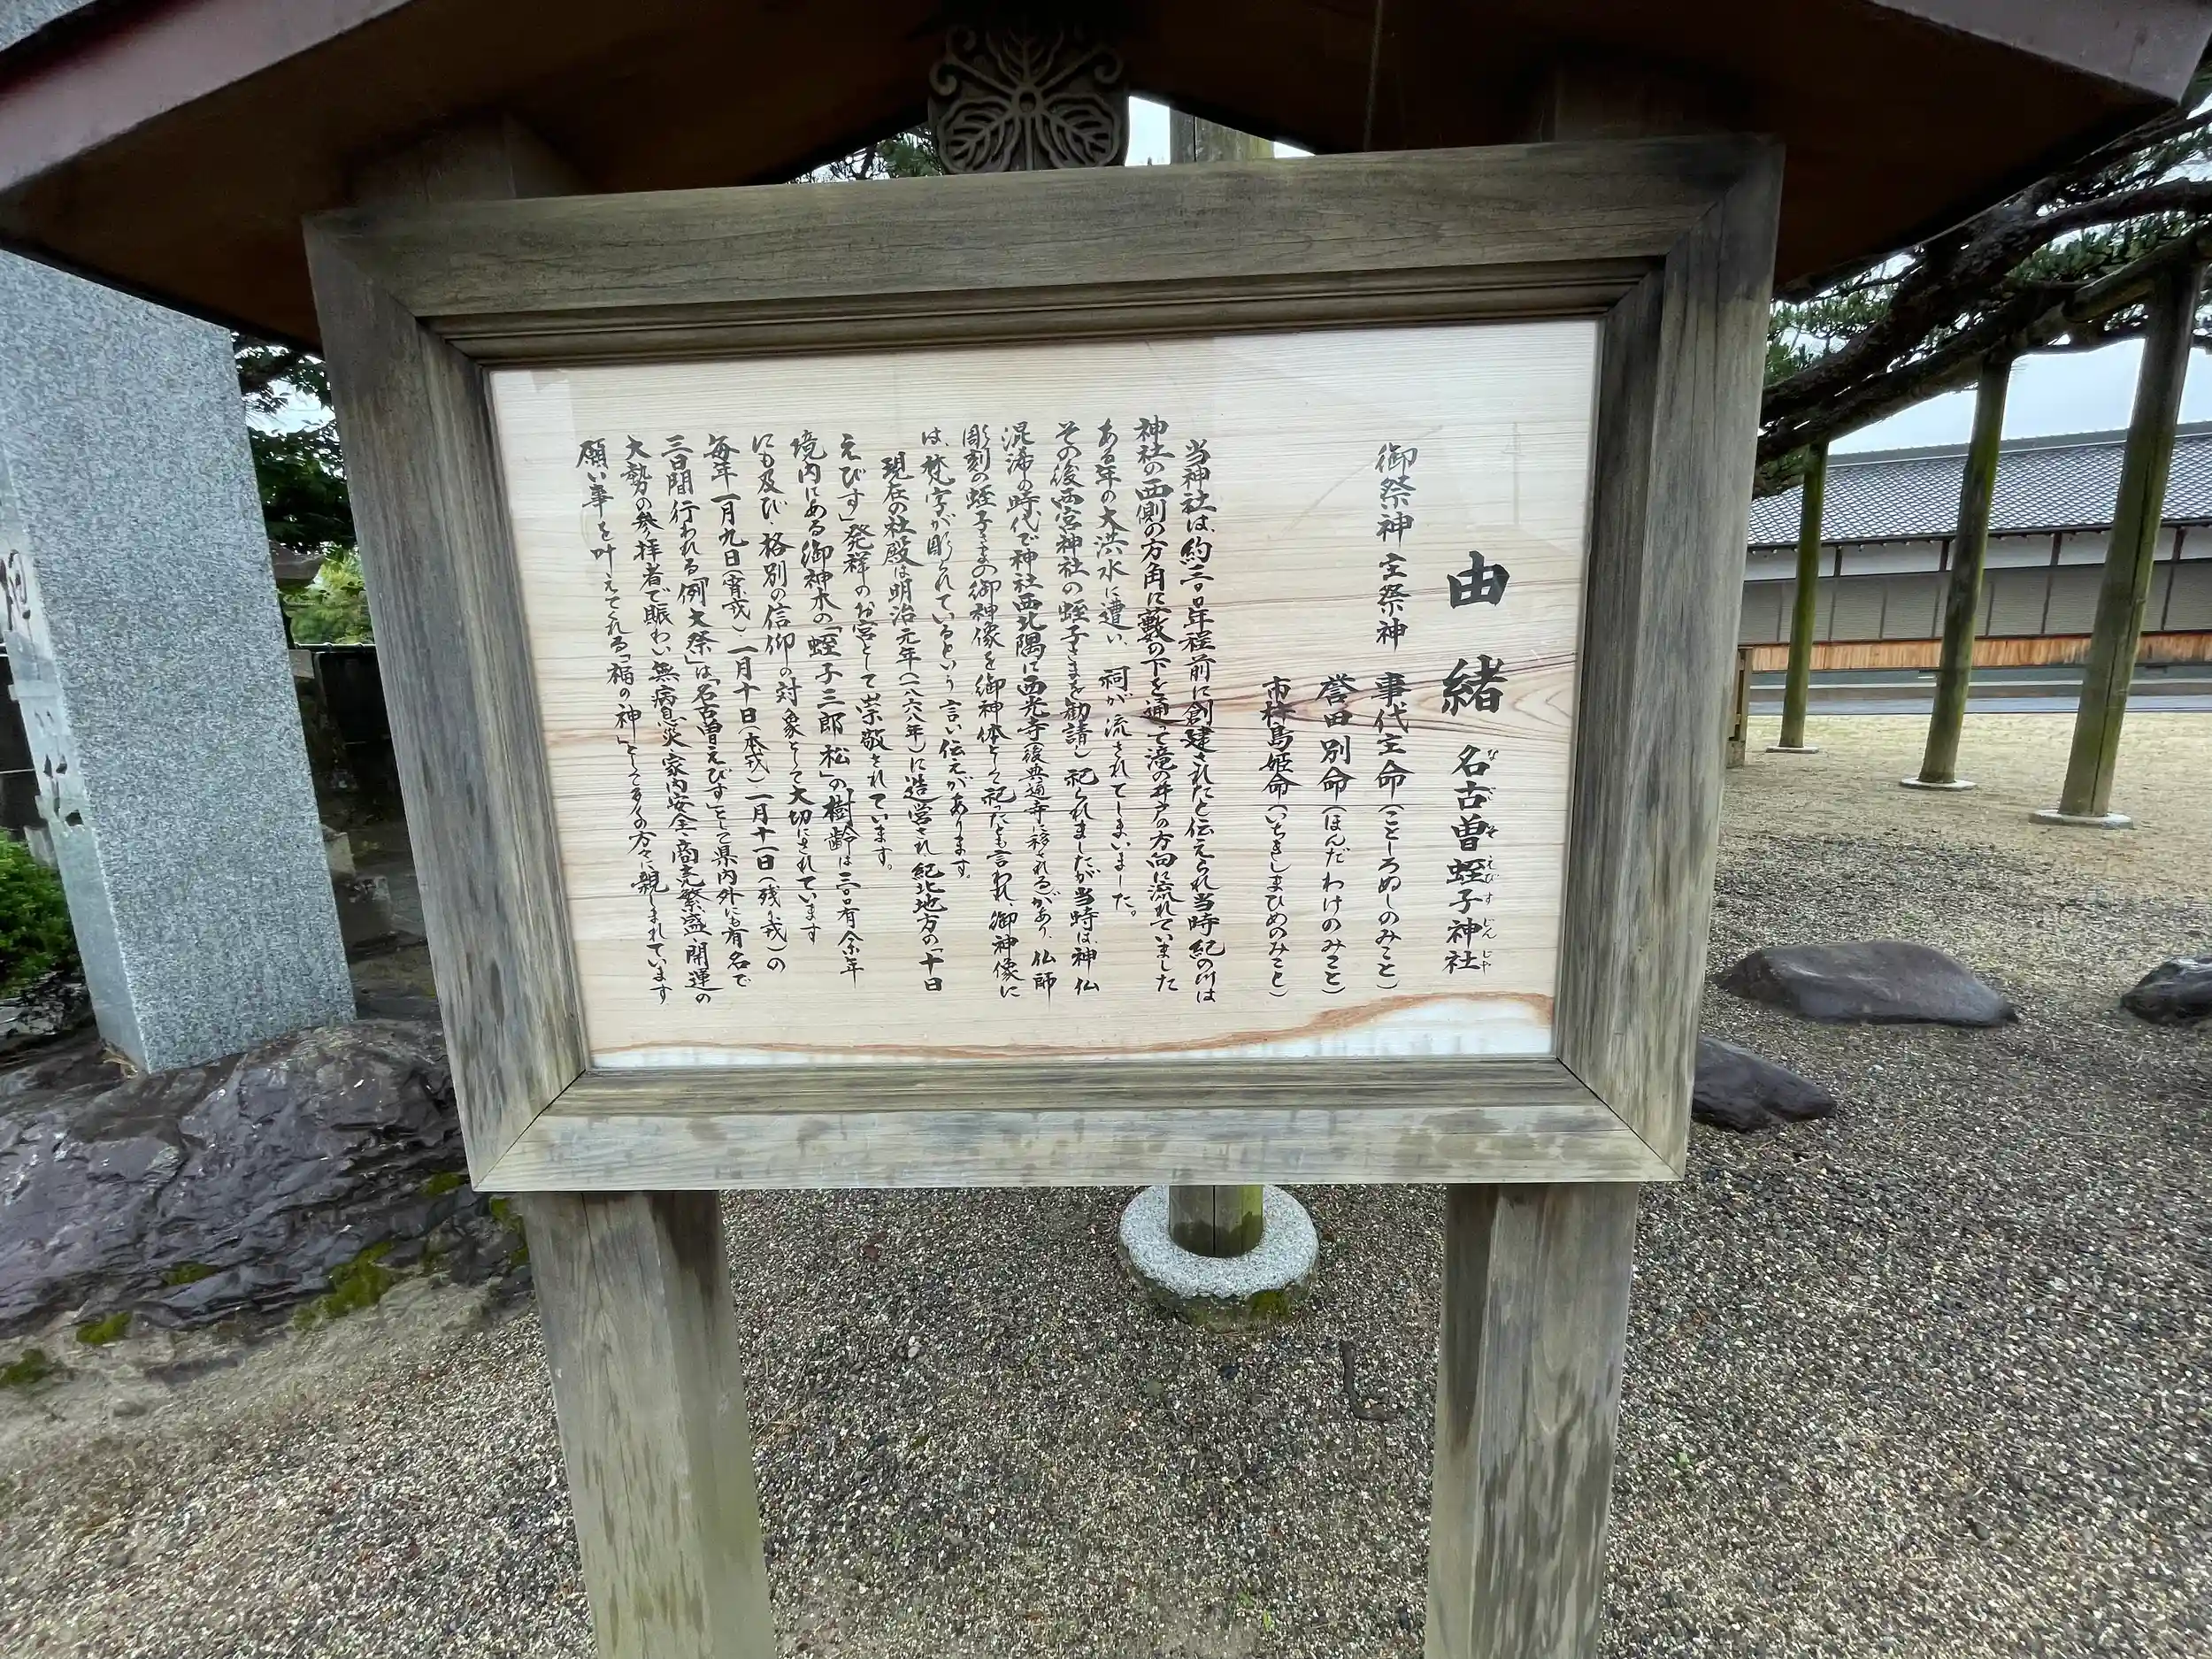 由緒 名古曽蛭子神社
なごそえびすじんじゃ
御祭神 主祭神 事代主命(ことしろぬしのみこと)
誉田別命(ほんだわけのみこと)
市杵島姫命(いちきしまひめのみこと)
当神社は、約三〇〇年程前に創建されたと伝えられ当時紀の川は
神社の西側の方角に藪の下を通って滝の井戸の方向に流れていました
ある年の大洪水に遭い、祠が流されてしまいました。
その後西宮神社の蛭子さまを勧請し祀られましたが当時は、神仏
混淆の時代で神社西北隅に西光寺(後興通寺に移される)があり、仏師
彫刻の蛭子さまの御神像を御神体として祀ったとも言われ、御神像に
は、梵字が彫られているという言い伝えがあります。
現在の社殿は明治元年(一八六八年)に造営され紀北地方の「十日
えびす」発祥のお宮として崇敬されています。
境内にある御神木の「蛭子三郎松」の樹齢は三〇〇有余年
にも及び、格別の信仰の対象として大切にされています
毎年一月九日(宵戎)一月十日(本戎)一月十一日(残り戎)の
三日間行われる「例大祭」は、「名古曽えびす」として県内外にも有名で
大勢の参拝者で賑わい、無病息災・家内安全・商売繁盛・開運の
願い事を叶えてくれる「福の神」として多くの方々に親しまれています